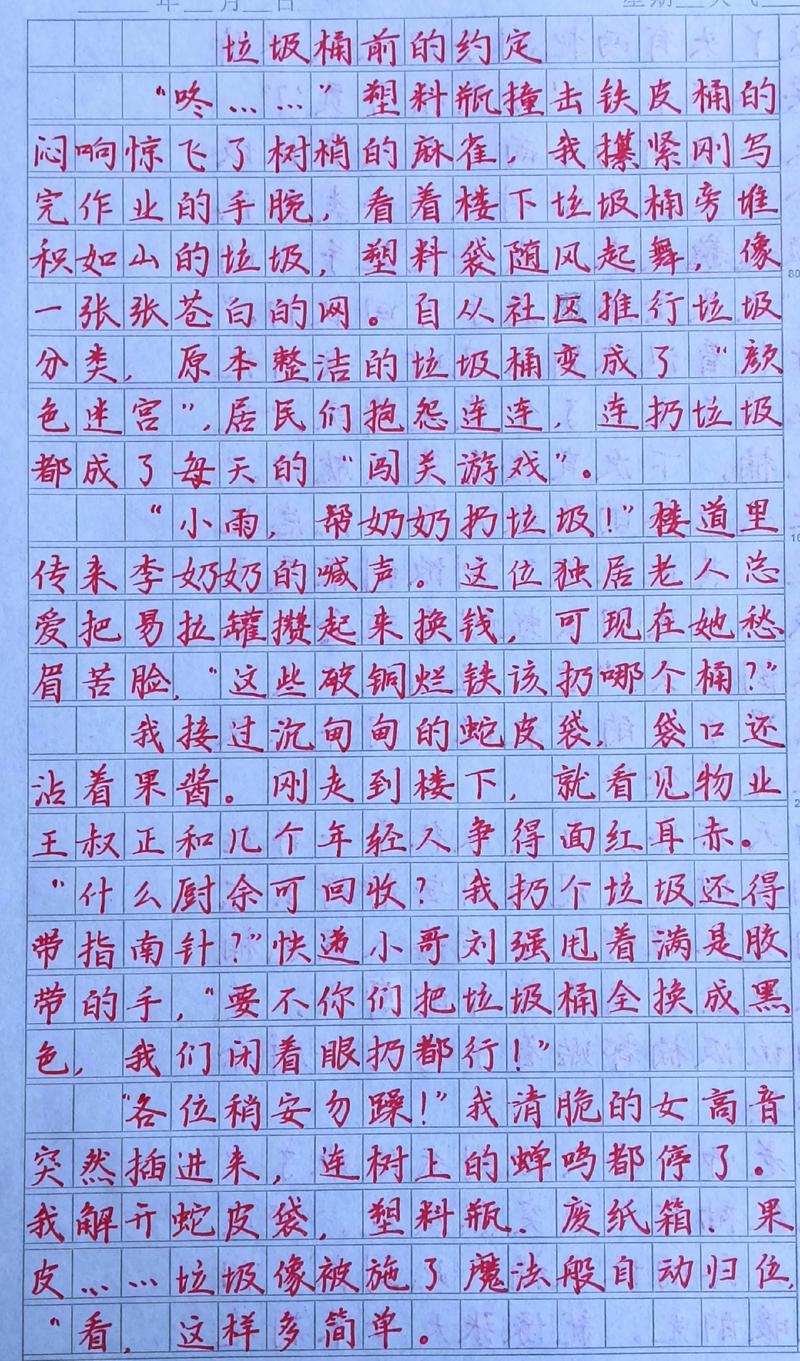 年 月 日 星期 天气
垃圾桶前的约定
“咚……”塑料瓶撞击铁皮桶的
闷响惊飞了树梢的麻雀，我攥紧刚写
完作业的手腕，看着楼下垃圾桶旁堆
积如山的垃圾，塑料袋随风起舞，像
一张张苍白的网。自从社区推行垃圾
分类，原本整洁的垃圾桶变成了“颜
色迷宫”，居民们抱怨连连，连扔垃圾
都成了每天的“闯关游戏”。
“小雨，帮奶奶扔垃圾！”楼道里
传来李奶奶的喊声。这位独居老人总
爱把易拉罐攒起来换钱，可现在她愁
眉苦脸，“这些破铜烂铁该扔哪个桶？”
我接过沉甸甸的蛇皮袋，袋口还
沾着果酱。刚走到楼下，就看见物业
王叔正和几个年轻人争得面红耳赤。
“什么厨余可回收？我扔个垃圾还得
带指南针？”快递小哥刘强甩着满是胶
带的手，“要不你们把垃圾桶全换成黑
色，我们闭着眼扔都行！”
“各位稍安勿躁！”我清脆的女高音
突然插进来，连树上的蝉鸣都停了。
我解开蛇皮袋，塑料瓶、废纸箱、果
皮……垃圾像被施了魔法般自动归位，
“看，这样多简单。